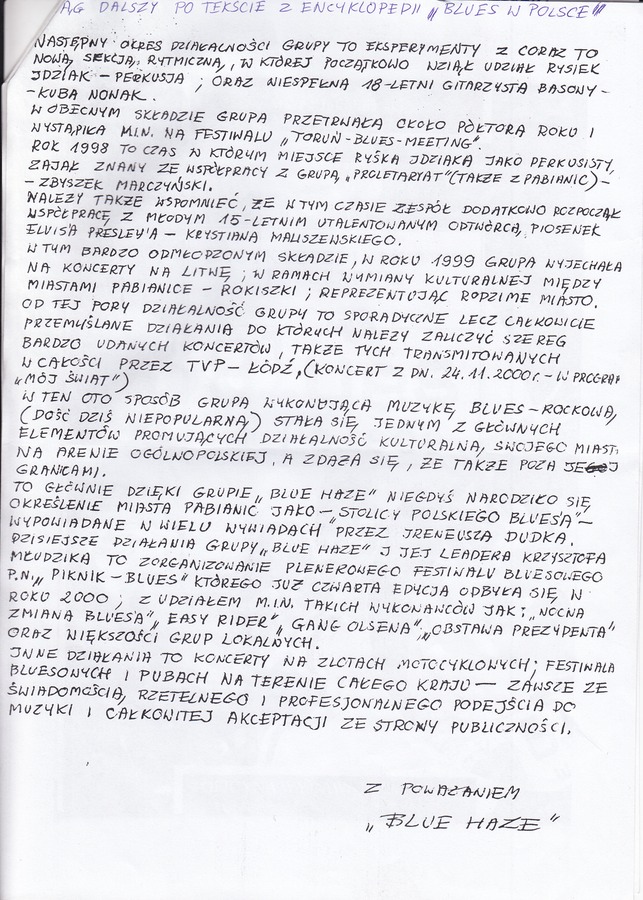 ĄG DALSZY PO TEKŚCIE Z ENCYKLOPEDII „BLUES W POLSCE"
NASTĘPNY OKRES DZIAŁALNOŚCI GRUPY TO EKSPERYMENTY Z CORAZ TO
NOWĄ SEKCJĄ RYTMICZNĄ, W KTÓREJ POCZĄTKOWO WZIĄŁ UDZIAŁ RYSIEK
JDZIAK – PERKUSJA ; ORAZ NIESPEŁNA 18-LETNI GITARZYSTA BASOWY –
– KUBA NOWAK.
W OBECNYM SKŁADZIE GRUPA PRZETRWAŁA OKOŁO PÓŁTORA ROKU I
WYSTĄPIŁA M.IN. NA FESTIWALU „TORUŃ-BLUES-MEETING".
ROK 1998 TO CZAS W KTÓRYM MIEJSCE RYŚKA JDZIAKA JAKO PERKUSISTY,
ZAJĄŁ ZNANY ZE WSPÓŁPRACY Z GRUPĄ „PROLETARYAT" (TAKŻE Z PABIANIC) –
– ZBYSZEK MARCZYŃSKI.
NALEŻY TAKŻE WSPOMNIEĆ, ŻE W TYM CZASIE ZESPÓŁ DODATKOWO ROZPOCZĄŁ
WSPÓŁPRACĘ Z MŁODYM 15-LETNIM UTALENTOWANYM ODTWÓRCĄ PIOSENEK
ELVISA PRESLEY'A – KRYSTIANA MALISZEWSKIEGO.
W TYM BARDZO ODMŁODZONYM SKŁADZIE, W ROKU 1999 GRUPA WYJECHAŁA
NA KONCERTY NA LITWĘ ; W RAMACH WYMIANY KULTURALNEJ MIĘDZY
MIASTAMI PABIANICE – ROKISZKI ; REPREZENTUJĄC RODZIME MIASTO.
OD TEJ PORY DZIAŁALNOŚĆ GRUPY TO SPORADYCZNE LECZ CAŁKOWICIE
PRZEMYŚLANE DZIAŁANIA DO KTÓRYCH NALEŻY ZALICZYĆ SZEREG
BARDZO UDANYCH KONCERTÓW, TAKŻE TYCH TRANSMITOWANYCH
W CAŁOŚCI PRZEZ TVP – ŁÓDŹ, (KONCERT Z DN. 24.11.2000r. – W PROGRAM
„MÓJ ŚWIAT")
W TEN OTO SPOSÓB GRUPA WYKONUJĄCA MUZYKĘ BLUES-ROCKOWĄ,
(DOŚĆ DZIŚ NIEPOPULARNĄ) STAŁA SIĘ JEDNYM Z GŁÓWNYCH
ELEMENTÓW PROMUJĄCYCH DZIAŁALNOŚĆ KULTURALNĄ SWOJEGO MIAST
NA ARENIE OGÓLNOPOLSKIEJ, A ZDAŻA SIĘ, ŻE TAKŻE POZA JEGO
GRANICAMI.
TO GŁÓWNIE DZIĘKI GRUPIE „BLUE HAZE" NIEGDYŚ NARODZIŁO SIĘ
OKREŚLENIE MIASTA PABIANIC JAKO – „STOLICY POLSKIEGO BLUES'A" –
WYPOWIADANE W WIELU WYWIADACH PRZEZ IRENEUSZA DUDKA.
DZISIEJSZE DZIAŁANIA GRUPY „BLUE HAZE" I JEJ LEADERA KRZYSZTOFA
MŁUDZIKA TO ZORGANIZOWANIE PLENEROWEGO FESTIWALU BLUESOWEGO
P.N. „PIKNIK-BLUES" KTÓREGO JUŻ CZWARTA EDYCJA ODBYŁA SIĘ W
ROKU 2000 ; Z UDZIAŁEM M.IN. TAKICH WYKONAWCÓW JAK : „NOCNA
ZMIANA BLUES'A", „EASY RIDER", „GANG OLSENA", „OBSTAWA PREZYDENTA"
ORAZ WIĘKSZOŚCI GRUP LOKALNYCH.
INNE DZIAŁANIA TO KONCERTY NA ZLOTACH MOTOCYKLOWYCH ; FESTIWALA
BLUESOWYCH I PUBACH NA TERENIE CAŁEGO KRAJU – ZAWSZE ZE
ŚWIADOMOŚCIĄ, RZETELNEGO I PROFESJONALNEGO PODEJŚCIA DO
MUZYKI I CAŁKOWITEJ AKCEPTACJI ZE STRONY PUBLICZNOŚCI.
Z POWAŻANIEM
„BLUE HAZE"